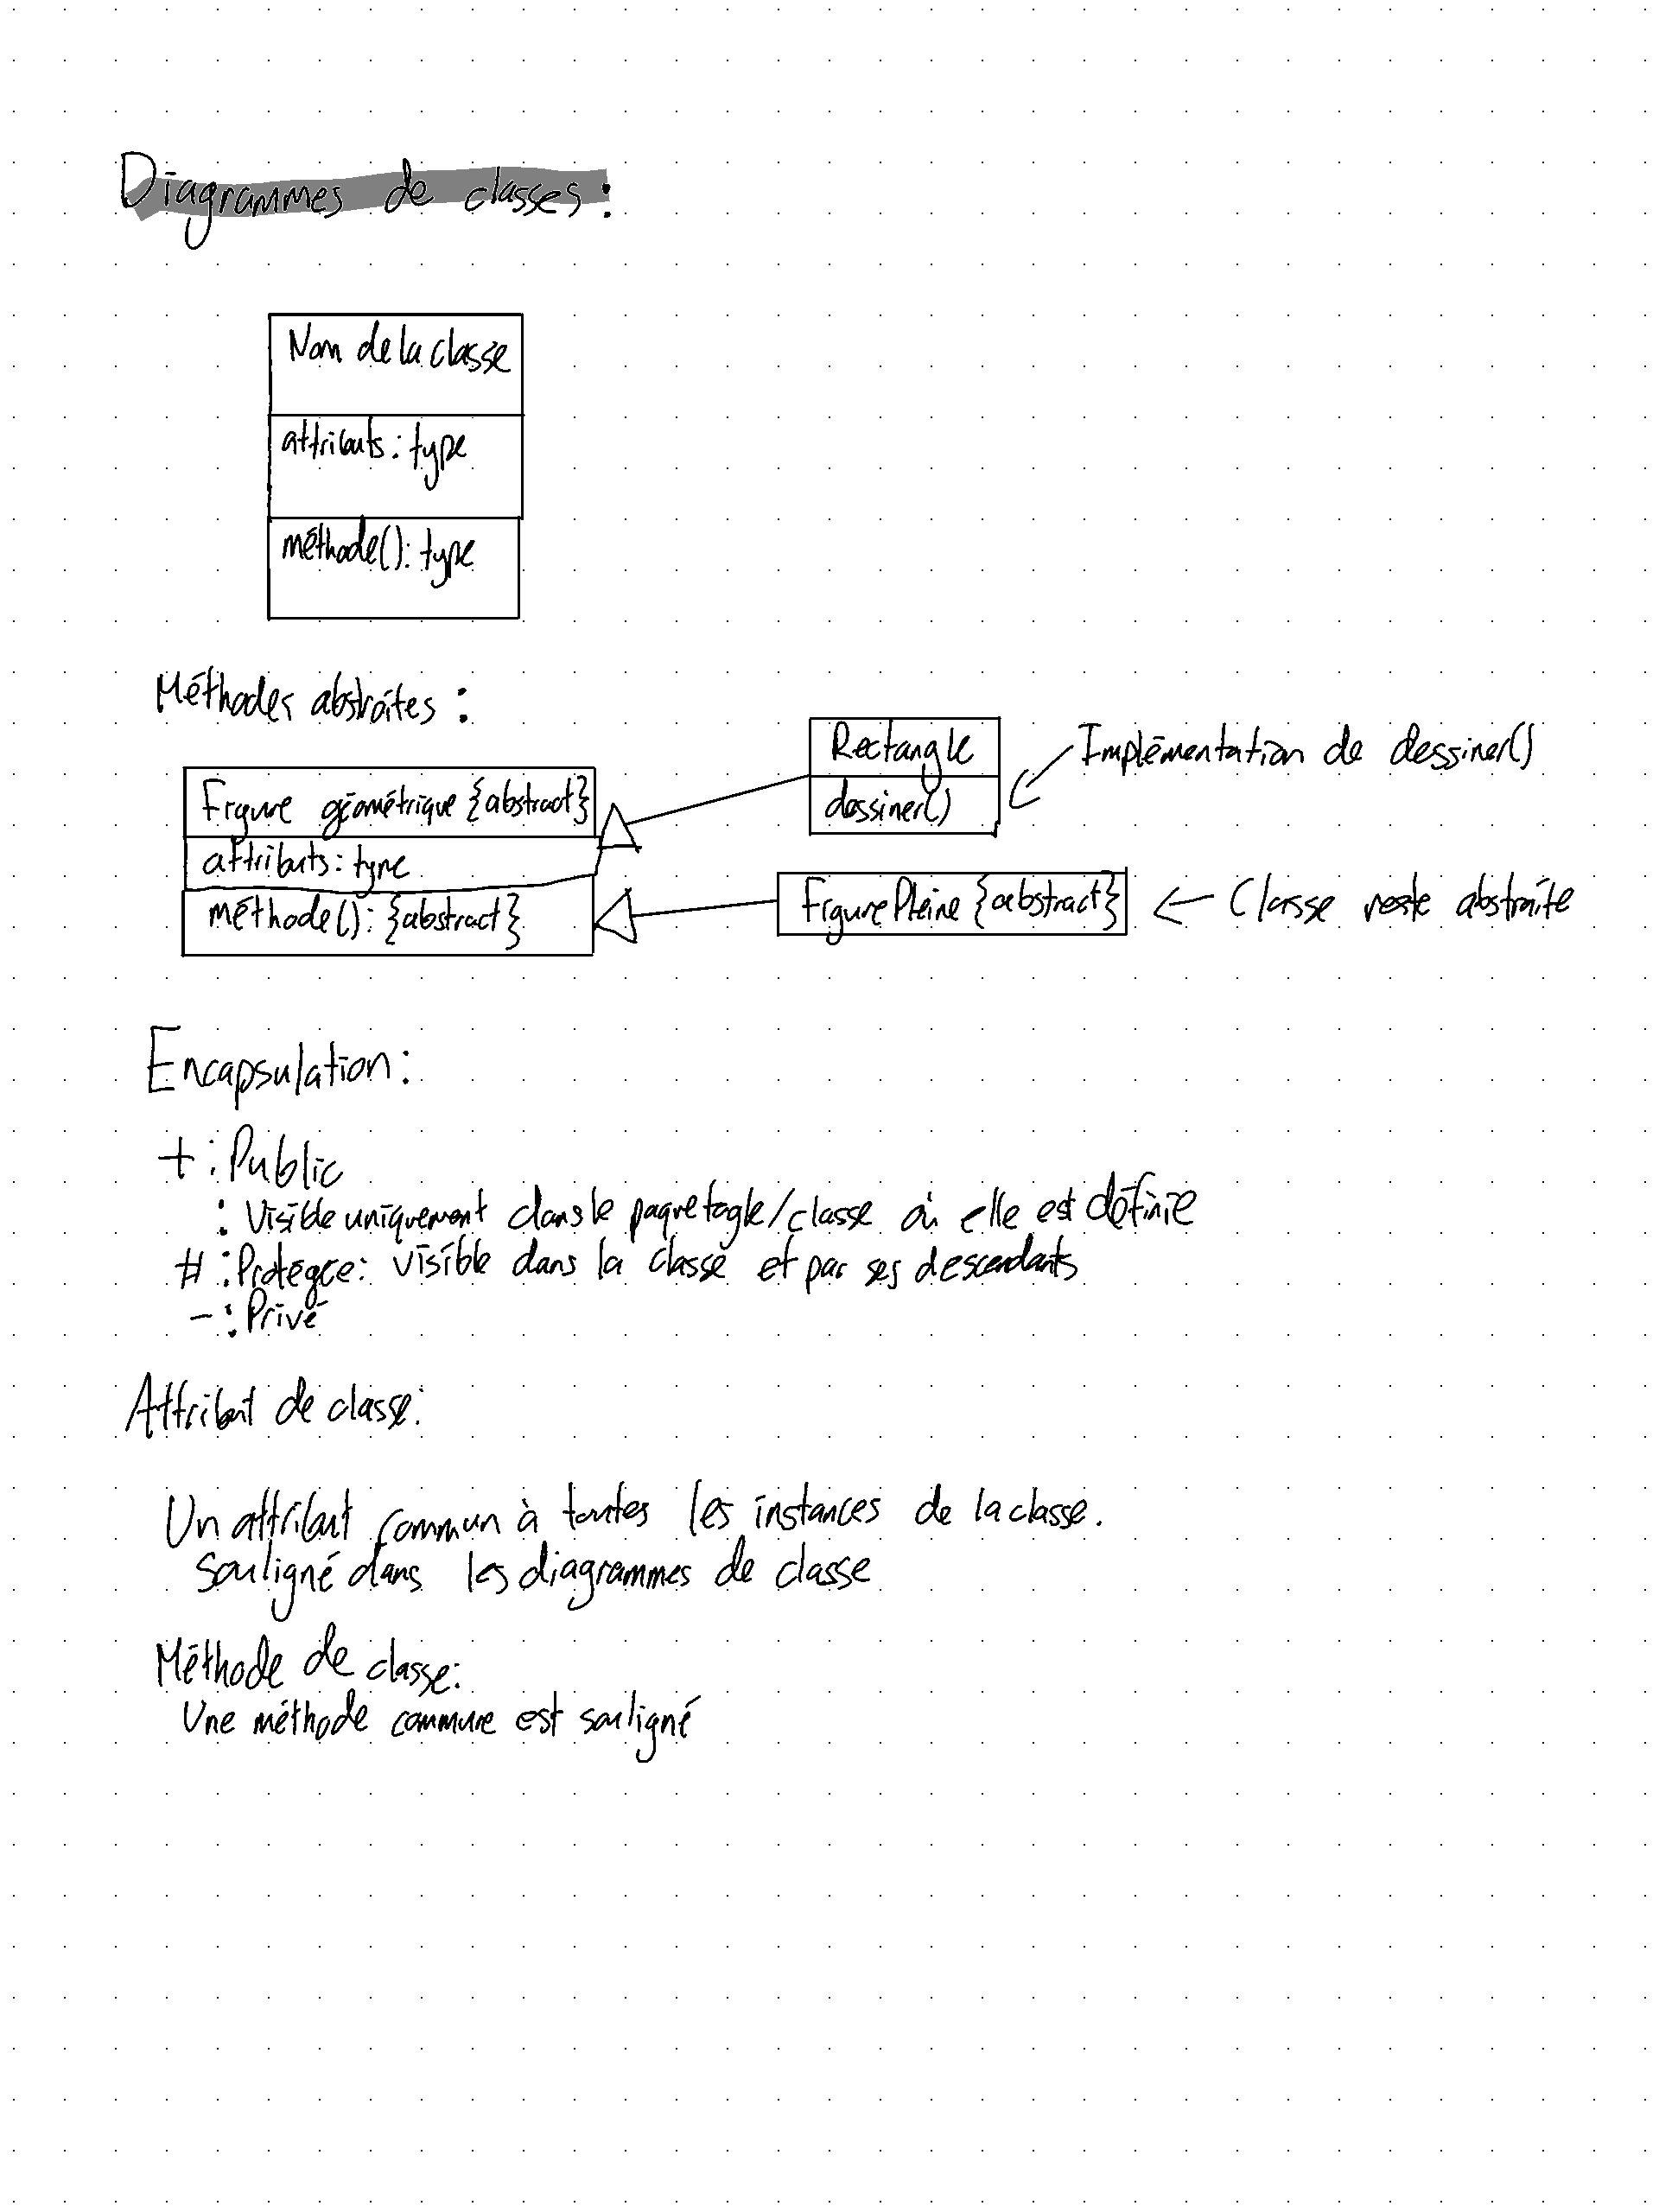 Diagrammes de classes :
Nom de la classe
attributs : type
méthode() : type
Méthodes abstraites :
Rectangle
dessiner()
Implémentation de dessiner()
Figure géométrique {abstract}
attributs : type
méthode() : {abstract}
FigurePleine {abstract}
Classe reste abstraite
Encapsulation :
+ : Public
: Visible uniquement dans le paquetagle/classe où elle est définie
# : Protégée : visible dans la classe et par ses descendants
- : Privé
Attribut de classe :
Un attribut commun à toutes les instances de la classe.
Souligné dans les diagrammes de classe
Méthode de classe :
Une méthode commune est souligné